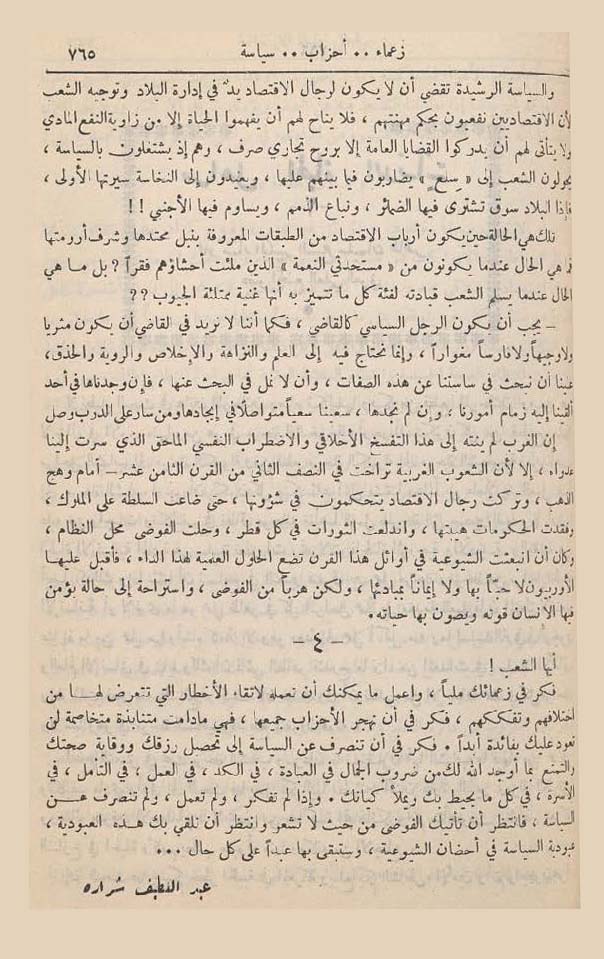 زعماء .. أحزاب .. سياسة ٧٦٥
والسياسة الرشيدة تقضي أن لا يكون لرجال الاقتصاد يدٌ في إدارة البلاد وتوجيه الشعب
لأن الاقتصاديين نفعيون بحكم مهنتهم ، فلا يتاح لهم أن يفهموا الحياة إلا من زاوية النفع المادي
ولا يتأتى لهم أن يدركوا القضايا العامة إلا بروح تجاري صرف ، وهم إذ يشتغلون بالسياسة ،
يحولون الشعب إلى « سلع » يضاربون فيا بينهم عليها ، ويعيدون إلى النخاسة سيرتها الأولى ،
فإذا البلاد سوق تشترى فيها الضمائر ، وتباع الذمم ، ويساوم فيها الأجنبي ! !
تلك هي الحالة حين يكون أرباب الاقتصاد من الطبقات المعروفة بنبل محتدها وشرف أرومتها
فما هي الحال عندما يكونون من « مستحدثي النعمة » الذين ملئت أحشاؤهم فقراً ؟ بل ما هي
الحال عندما يسلم الشعب قيادته لفئة كل ما تتميز به أنها غنية ممتلئة الجيوب ؟؟
– يجب أن يكون الرجل السياسي كالقاضي ، فكما أننا لا نريد في القاضي أن يكون مثريا
ولا وجيهاً ولا فارساً مغواراً ، وإنما نحتاج فيه إلى العلم والنزاهة والإخلاص والروية والحذق ،
علينا أن نبحث في ساستنا عن هذه الصفات ، وأن لا نمل في البحث عنها ، فإن وجدناها في أحد
ألقينا إليه زمام أمورنا ، وإن لم نجدها ، سعينا سعياً متواصلاً في إيجادها ومن سار على الدرب وصل
إن الغرب لم ينته إلى هذا التفسخ الأخلاقي والاضطراب النفسي الماحق الذي سرت إلينا
عدواه ، إلا لأن الشعوب الغربية تراخت في النصف الثاني من القرن الثامن عشر – أمام وهج
الذهب ، وتركت رجال الاقتصاد يتحكمون في شؤونها ، حتى ضاعت السلطة على الملوك ،
وفقدت الحكومات هيبتها ، واندلعت الثورات في كل قطر ، وحلت الفوضى محل النظام ،
وكان أن انبعثت الشيوعية في أوائل هذا القرن تضع الحلول العلمية لهذا الداء ، فأقبل عليها
الأوربيون لا حبّاً بها ولا إيماناً بمبادئها ، ولكن هرباً من الفوضى ، واستراحة إلى حالة يؤمن
فيها الإنسان قوته ويصون بها حياته .
– ٤ –
أيها الشعب !
فكر في زعمائك ملياً ، واعمل ما يمكنك أن تعمله لاتقاء الأخطار التي تتعرض لها من
اختلافهم وتفككهم ، فكر في أن تهجر الأحزاب جميعها ، فهي مادامت متنابذة متخاصمة لن
تعود عليك بفائدة أبداً . فكر في أن تنصرف عن السياسة إلى تحصيل رزقك ووقاية صحتك
والتمتع بما أوجد الله لك من ضروب الجمال في العبادة ، في الكد ، في العمل ، في التأمل ، في
الأسرة ، في كل ما يحيط بك ويملأ كيانك . وإذا لم تفكر ، ولم تعمل ، ولم تنصرف عن
السياسة ، فانتظر أن تأتيك الفوضى من حيث لا تشعر وانتظر أن تلقي بك هذه العبودية ،
عبودية السياسة في أحضان الشيوعية ، وستبقى بها عبداً على كل حال ...
عبد اللطيف شراره